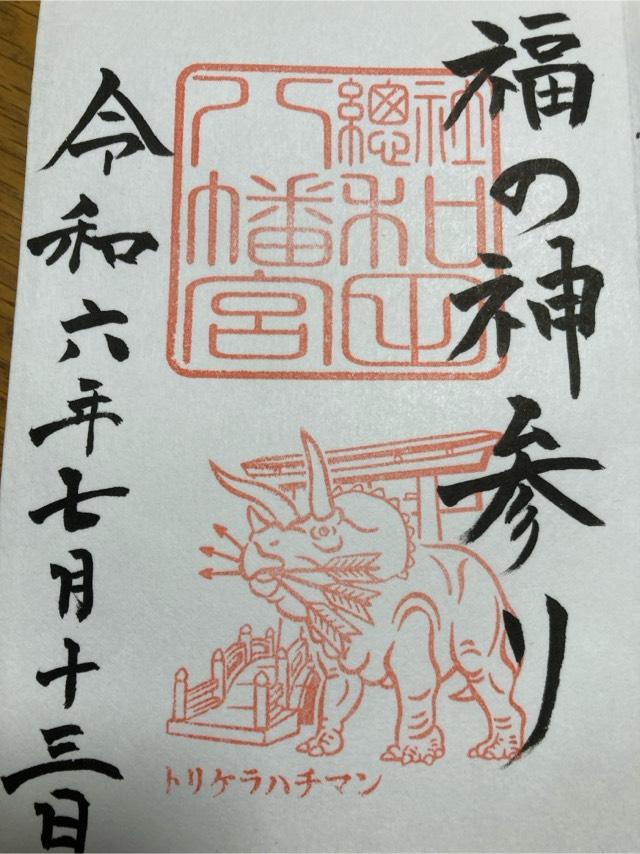 福の神参り
總社
和田
八幡宮
トリケラハチマン
令和六年七月十三日